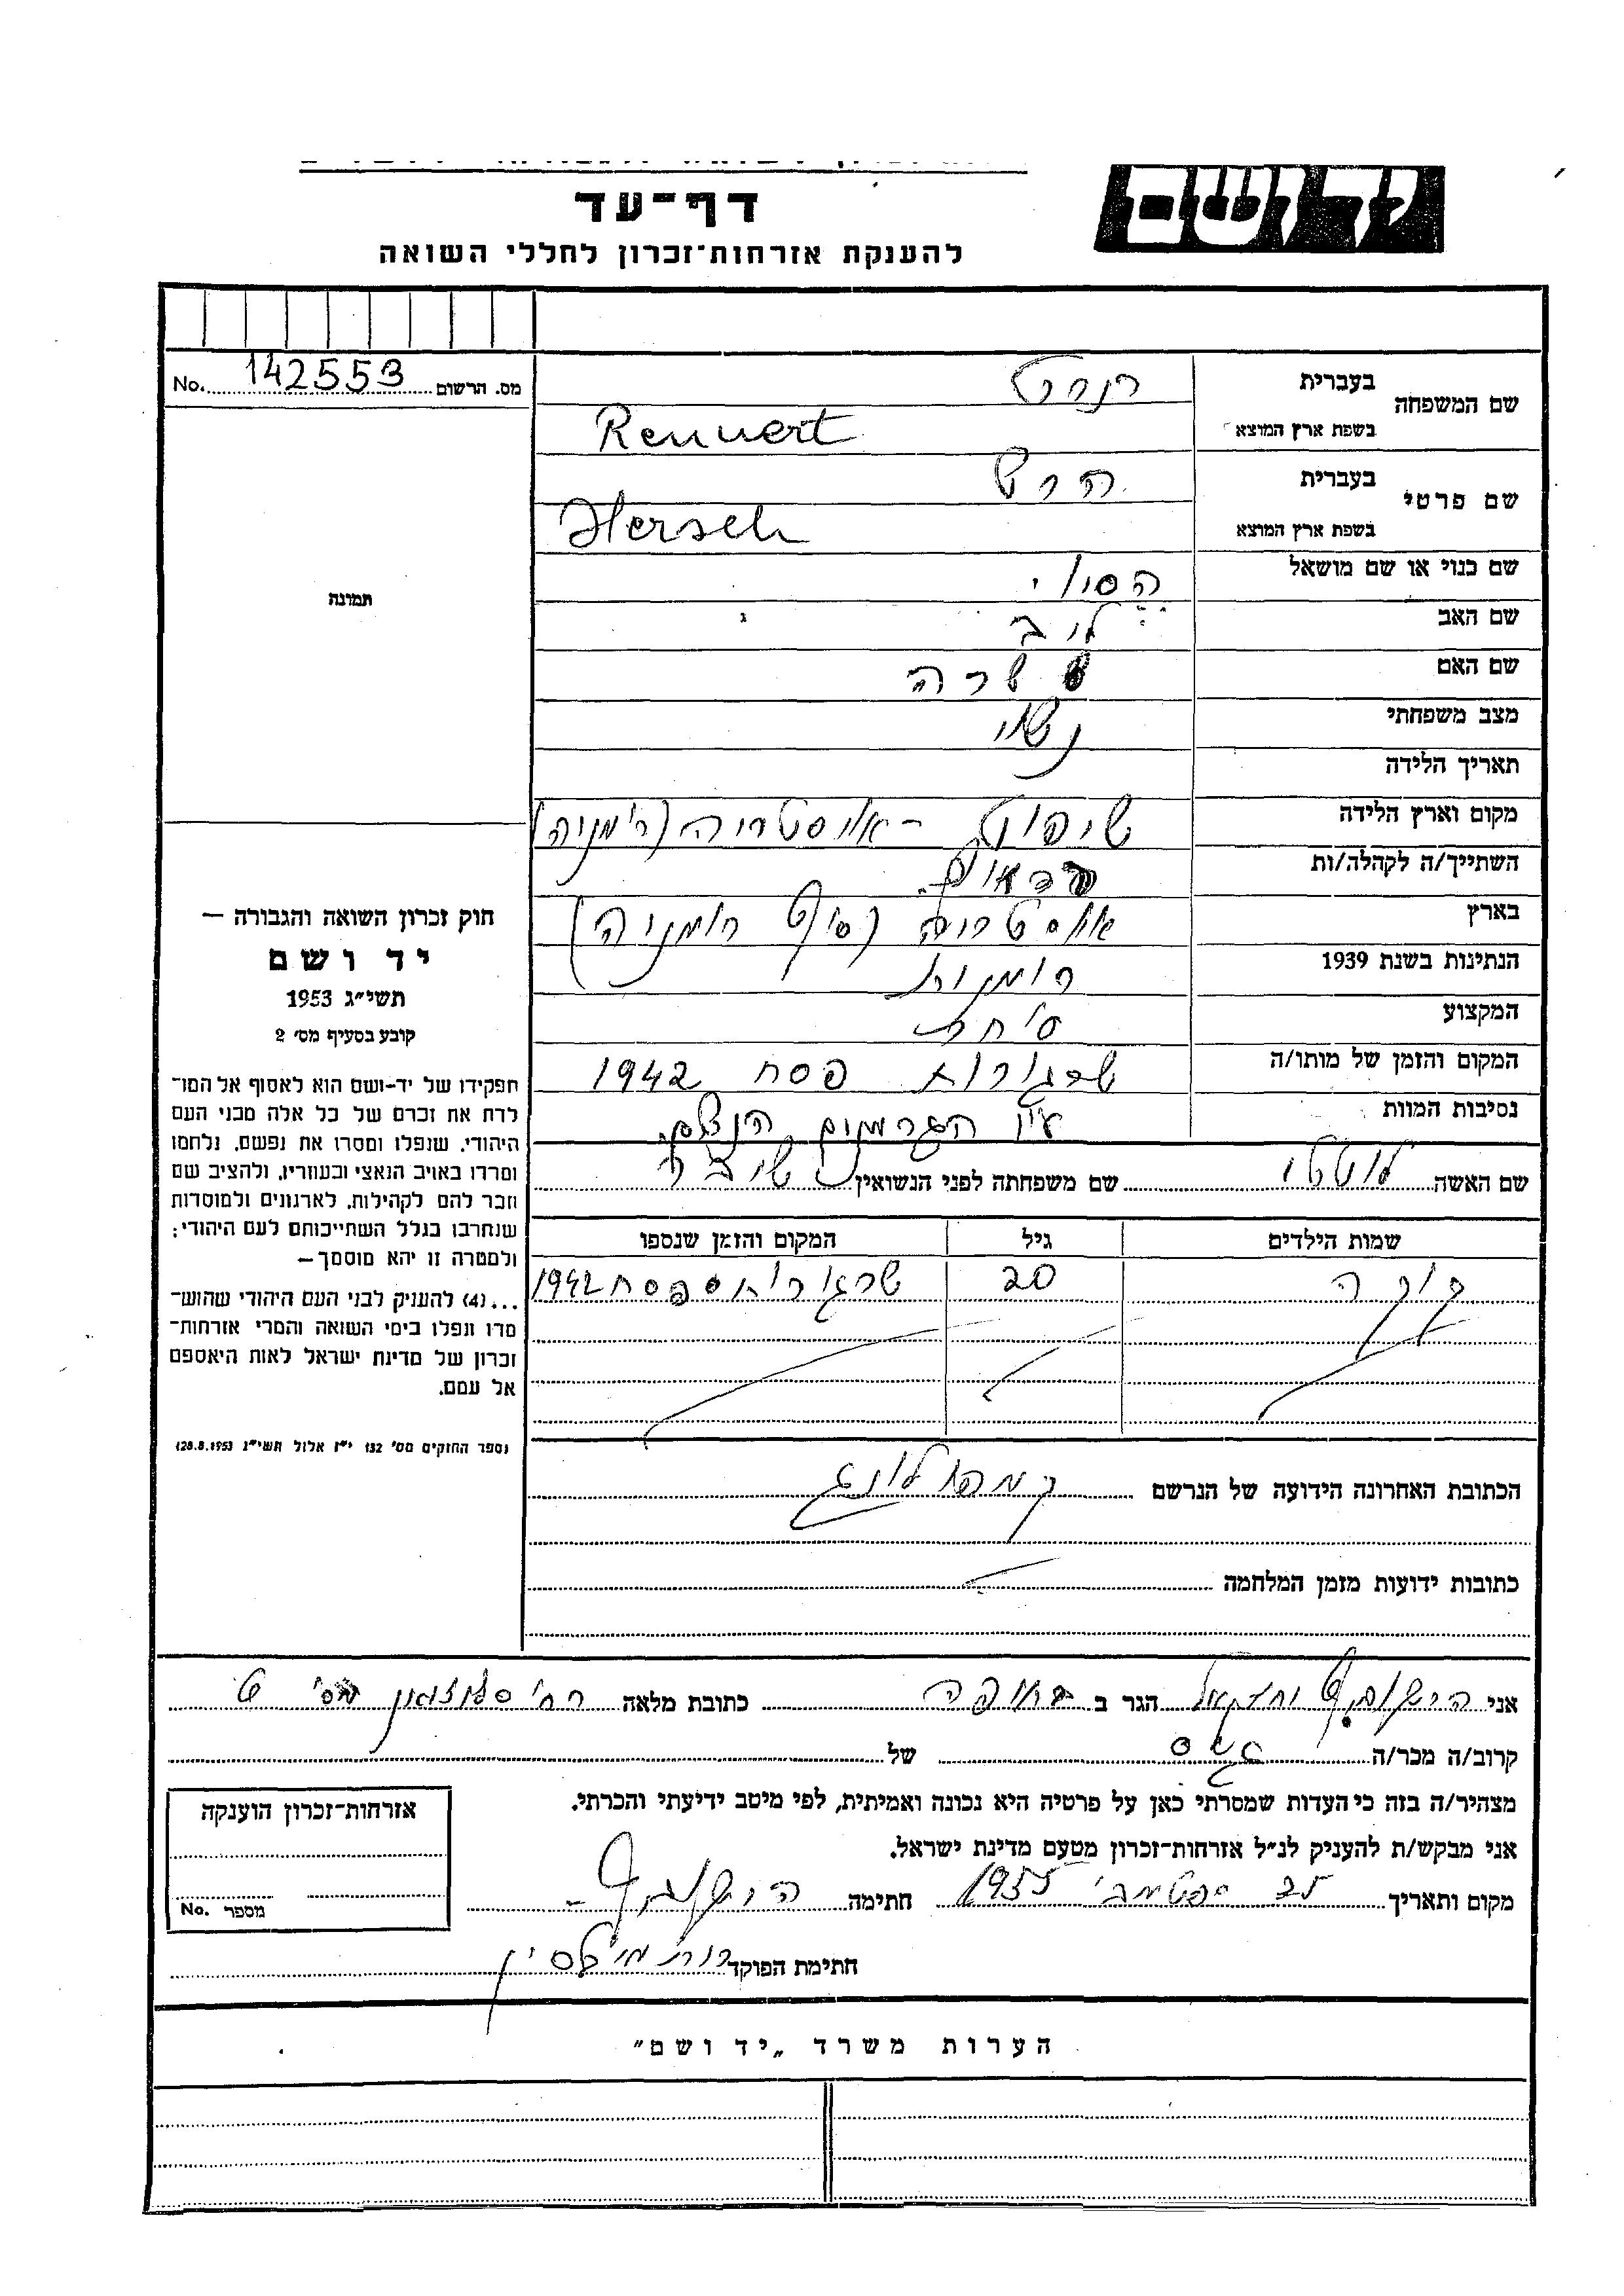 יד ושם
דף-עד
להענקת אזרחות-זכרון לחללי השואה
מס. הרשום 142553 No.
שם המשפחה
בעברית רנרט
בשפת ארץ המוצא Rennert
שם פרטי
בעברית הרש
בשפת ארץ המוצא Hersch
שם כנוי או שם מושאל
שם האב לייב
שם האם שרה
מצב משפחתי נשוי
תאריך הלידה
מקום וארץ הלידה שיפוט - אוסטריה (רומניה)
השתייך/ה לקהלה/ות
בארץ אוסטריה (סוף רומניה)
הנתינות בשנת 1939 רומנית
המקצוע סוחר
המקום והזמן של מותו/ה שרגורוד פסח 1942
נסיבות המוות ע"י הגרמנים הנצים
שם האשה לוטטי שם משפחתה לפני הנשואין
שמות הילדים גיל המקום והזמן שנספו
20 שרגורוד פסח 1942
הכתובת האחרונה הידועה של הנרשם קמפולונג
כתובות ידועות מזמן המלחמה
תמונה
חוק זכרון השואה והגבורה —
יד ושם
תשי"ג 1953
קובע בסעיף מס' 2
תפקידו של יד-ושם הוא לאסוף אל המו-
לדת את זכרם של כל אלה מבני העם
היהודי, שנפלו ומסרו את נפשם, נלחמו
ומרדו באויב הנאצי ובעוזריו, ולהציב שם
וזכר להם לקהילות, לארגונים ולמוסדות
שנחרבו בגלל השתייכותם לעם היהודי;
ולמטרה זו יהא מוסמך—
...(4) להעניק לבני העם היהודי שהוש-
מדו ונפלו בימי השואה והמרי אזרחות-
זכרון של מדינת ישראל לאות היאספם
אל עמם.
(ספר החוקים מס' 132 י"ז אלול תשי"ג 28.8.1953)
אני הירשהורן יחזקאל הגר ב חיפה כתובת מלאה רח'
קרוב/ה מכר/ה גיס של
מצהיר/ה בזה כי העדות שמסרתי כאן על פרטיה היא נכונה ואמיתית, לפי מיטב ידיעתי והכרתי.
אני מבקש/ת להעניק לנ"ל אזרחות-זכרון מטעם מדינת ישראל.
מקום ותאריך ספטמבר 1955 חתימה
חתימת הפוקד רות
אזרחות-זכרון הוענקה
מספר No.
הערות משרד „יד ושם"